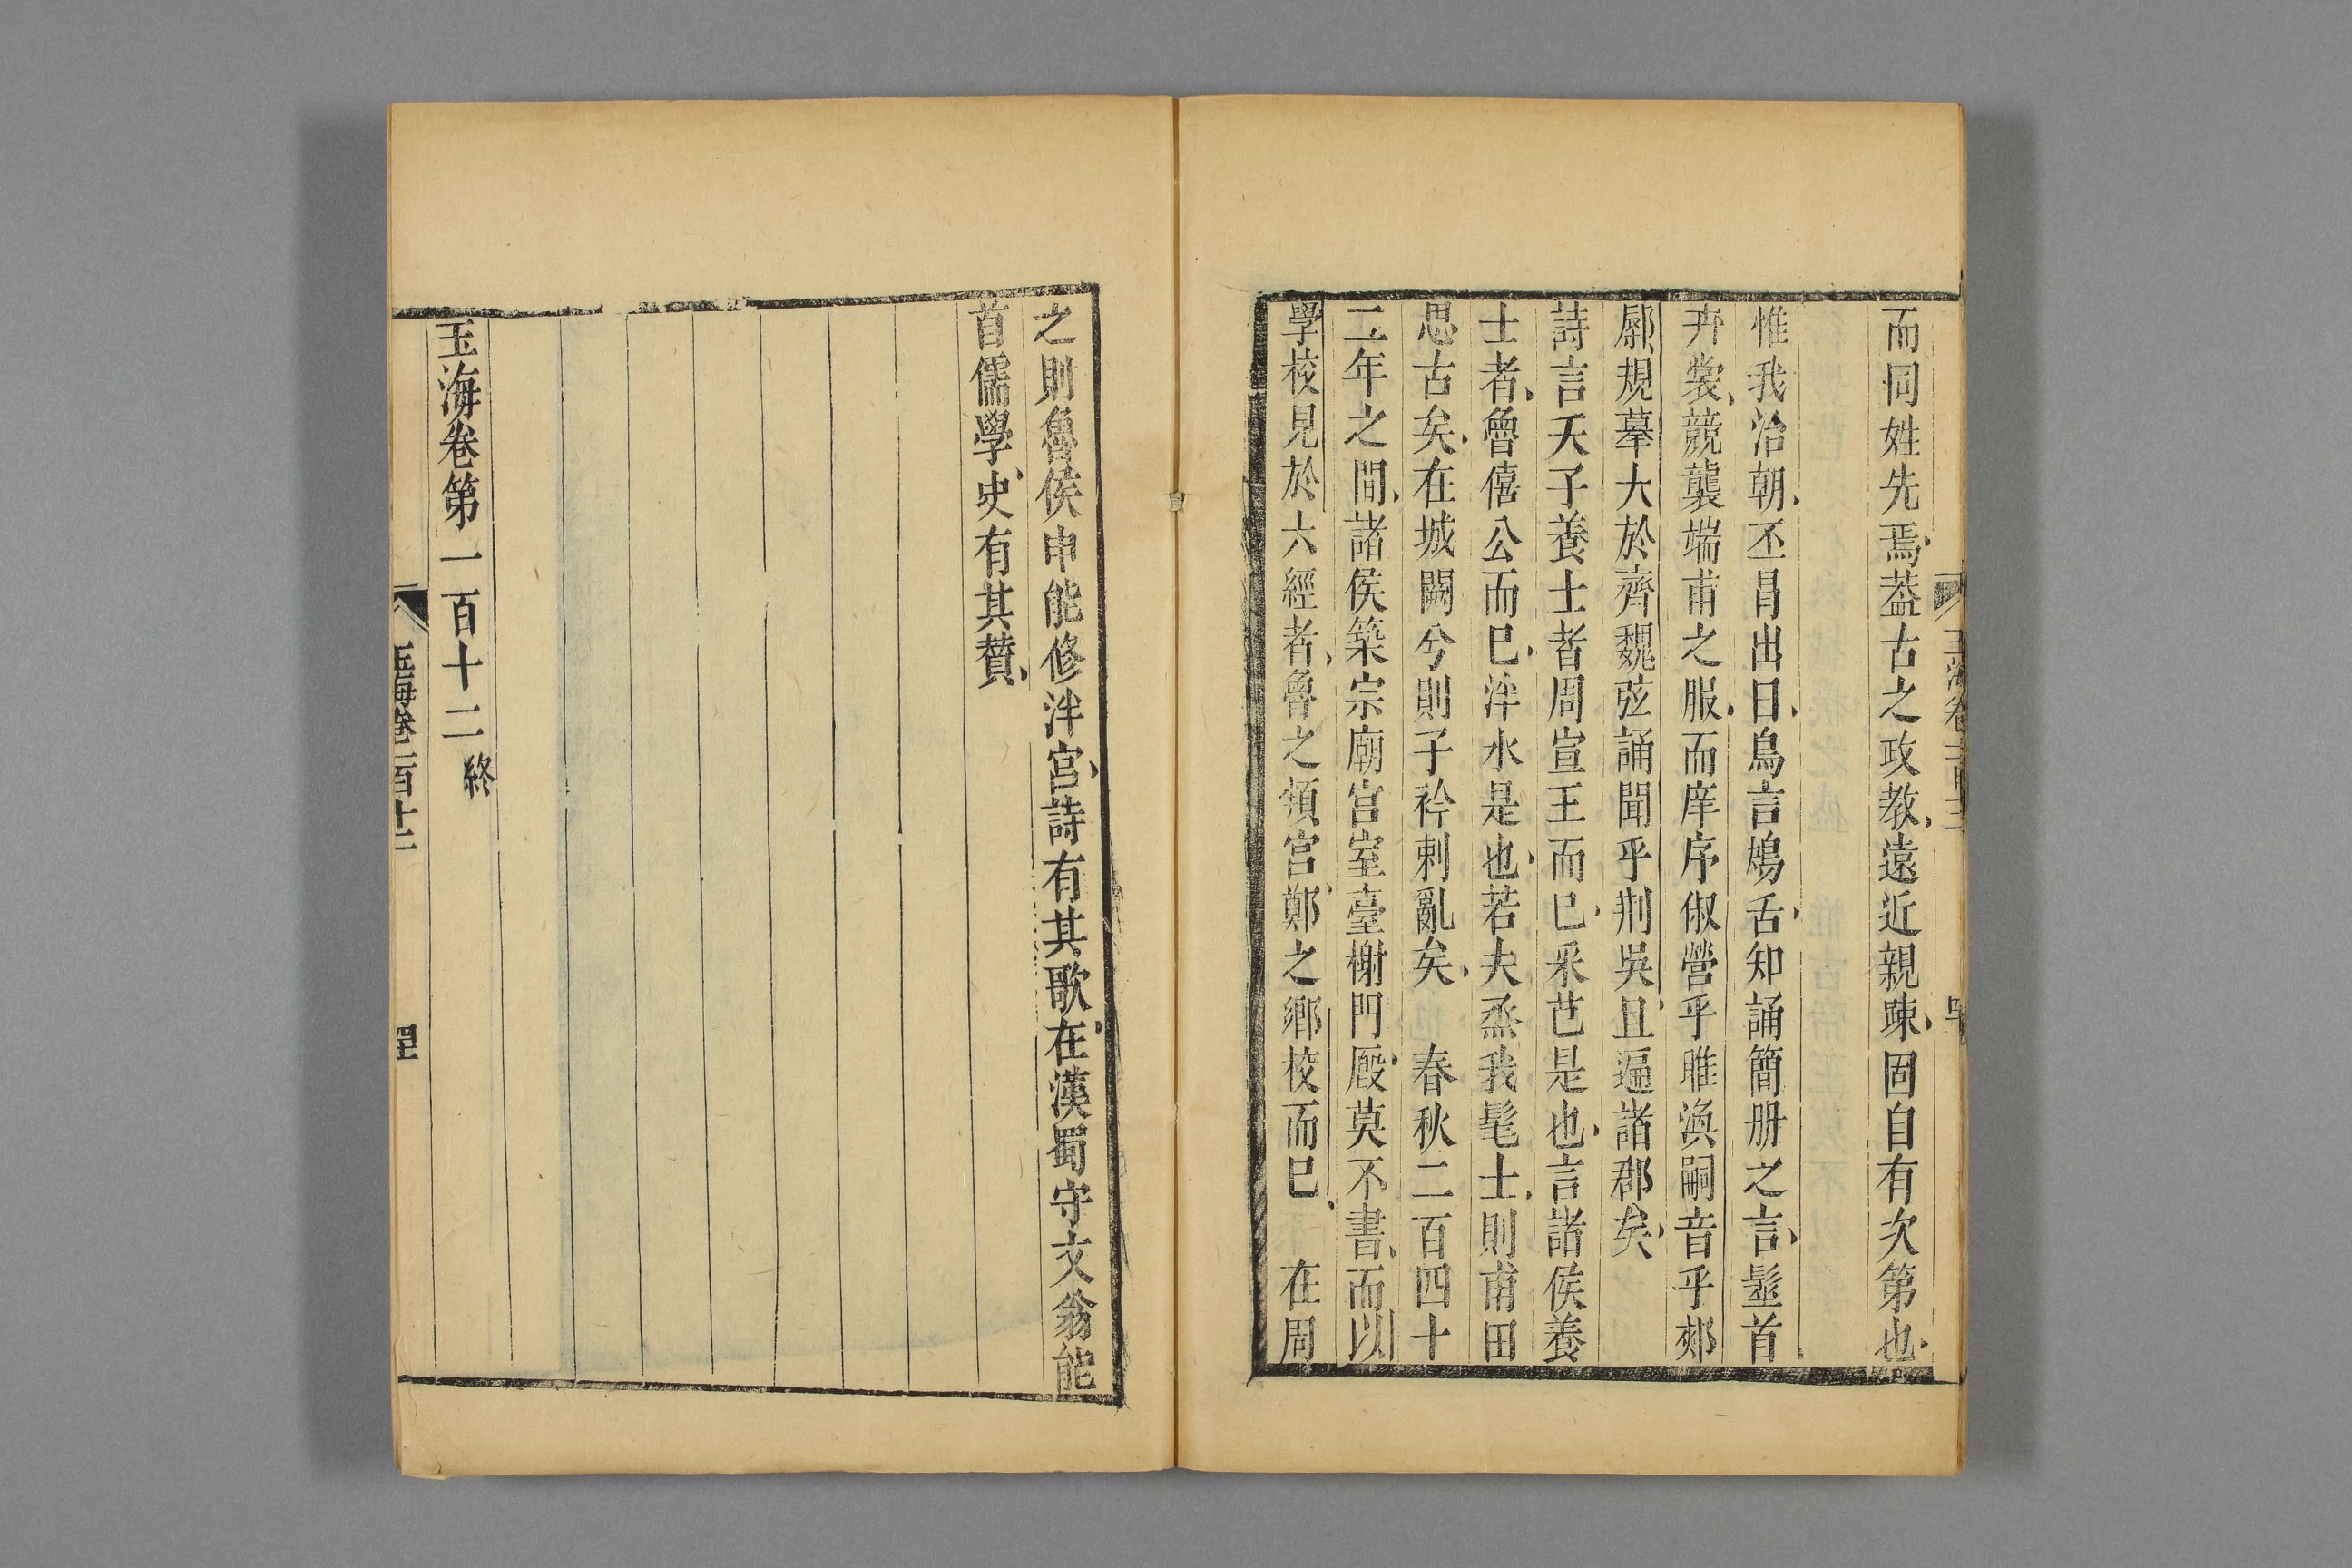 而同姓先焉蓋古之政教遠近親踈固自有次第也
惟我治朝丕昌出日鳥言鴂舌知誦簡册之言髽首
卉裳競襲端甫之服而庠序俶營乎睢渙嗣音乎郟
鄏規摹大於齊魏弦誦聞乎荆吳且遍諸郡矣
詩言天子養士者周宣王而巳采芑是也言諸侯養
士者魯僖公而巳泮水是也若夫烝我髦士則甫田
思古矣在城闕兮則子衿刺亂矣　春秋二百四十
二年之間諸侯築宗廟宫室臺榭門廐莫不書而以
學校見於六經者魯之頖宫鄭之鄉校而巳　在周
之則魯侯申能修泮宮詩有其歌在漢蜀守文翁能
首儒學史有其贊
玉海卷第一百十二 終
玉海卷一百十二